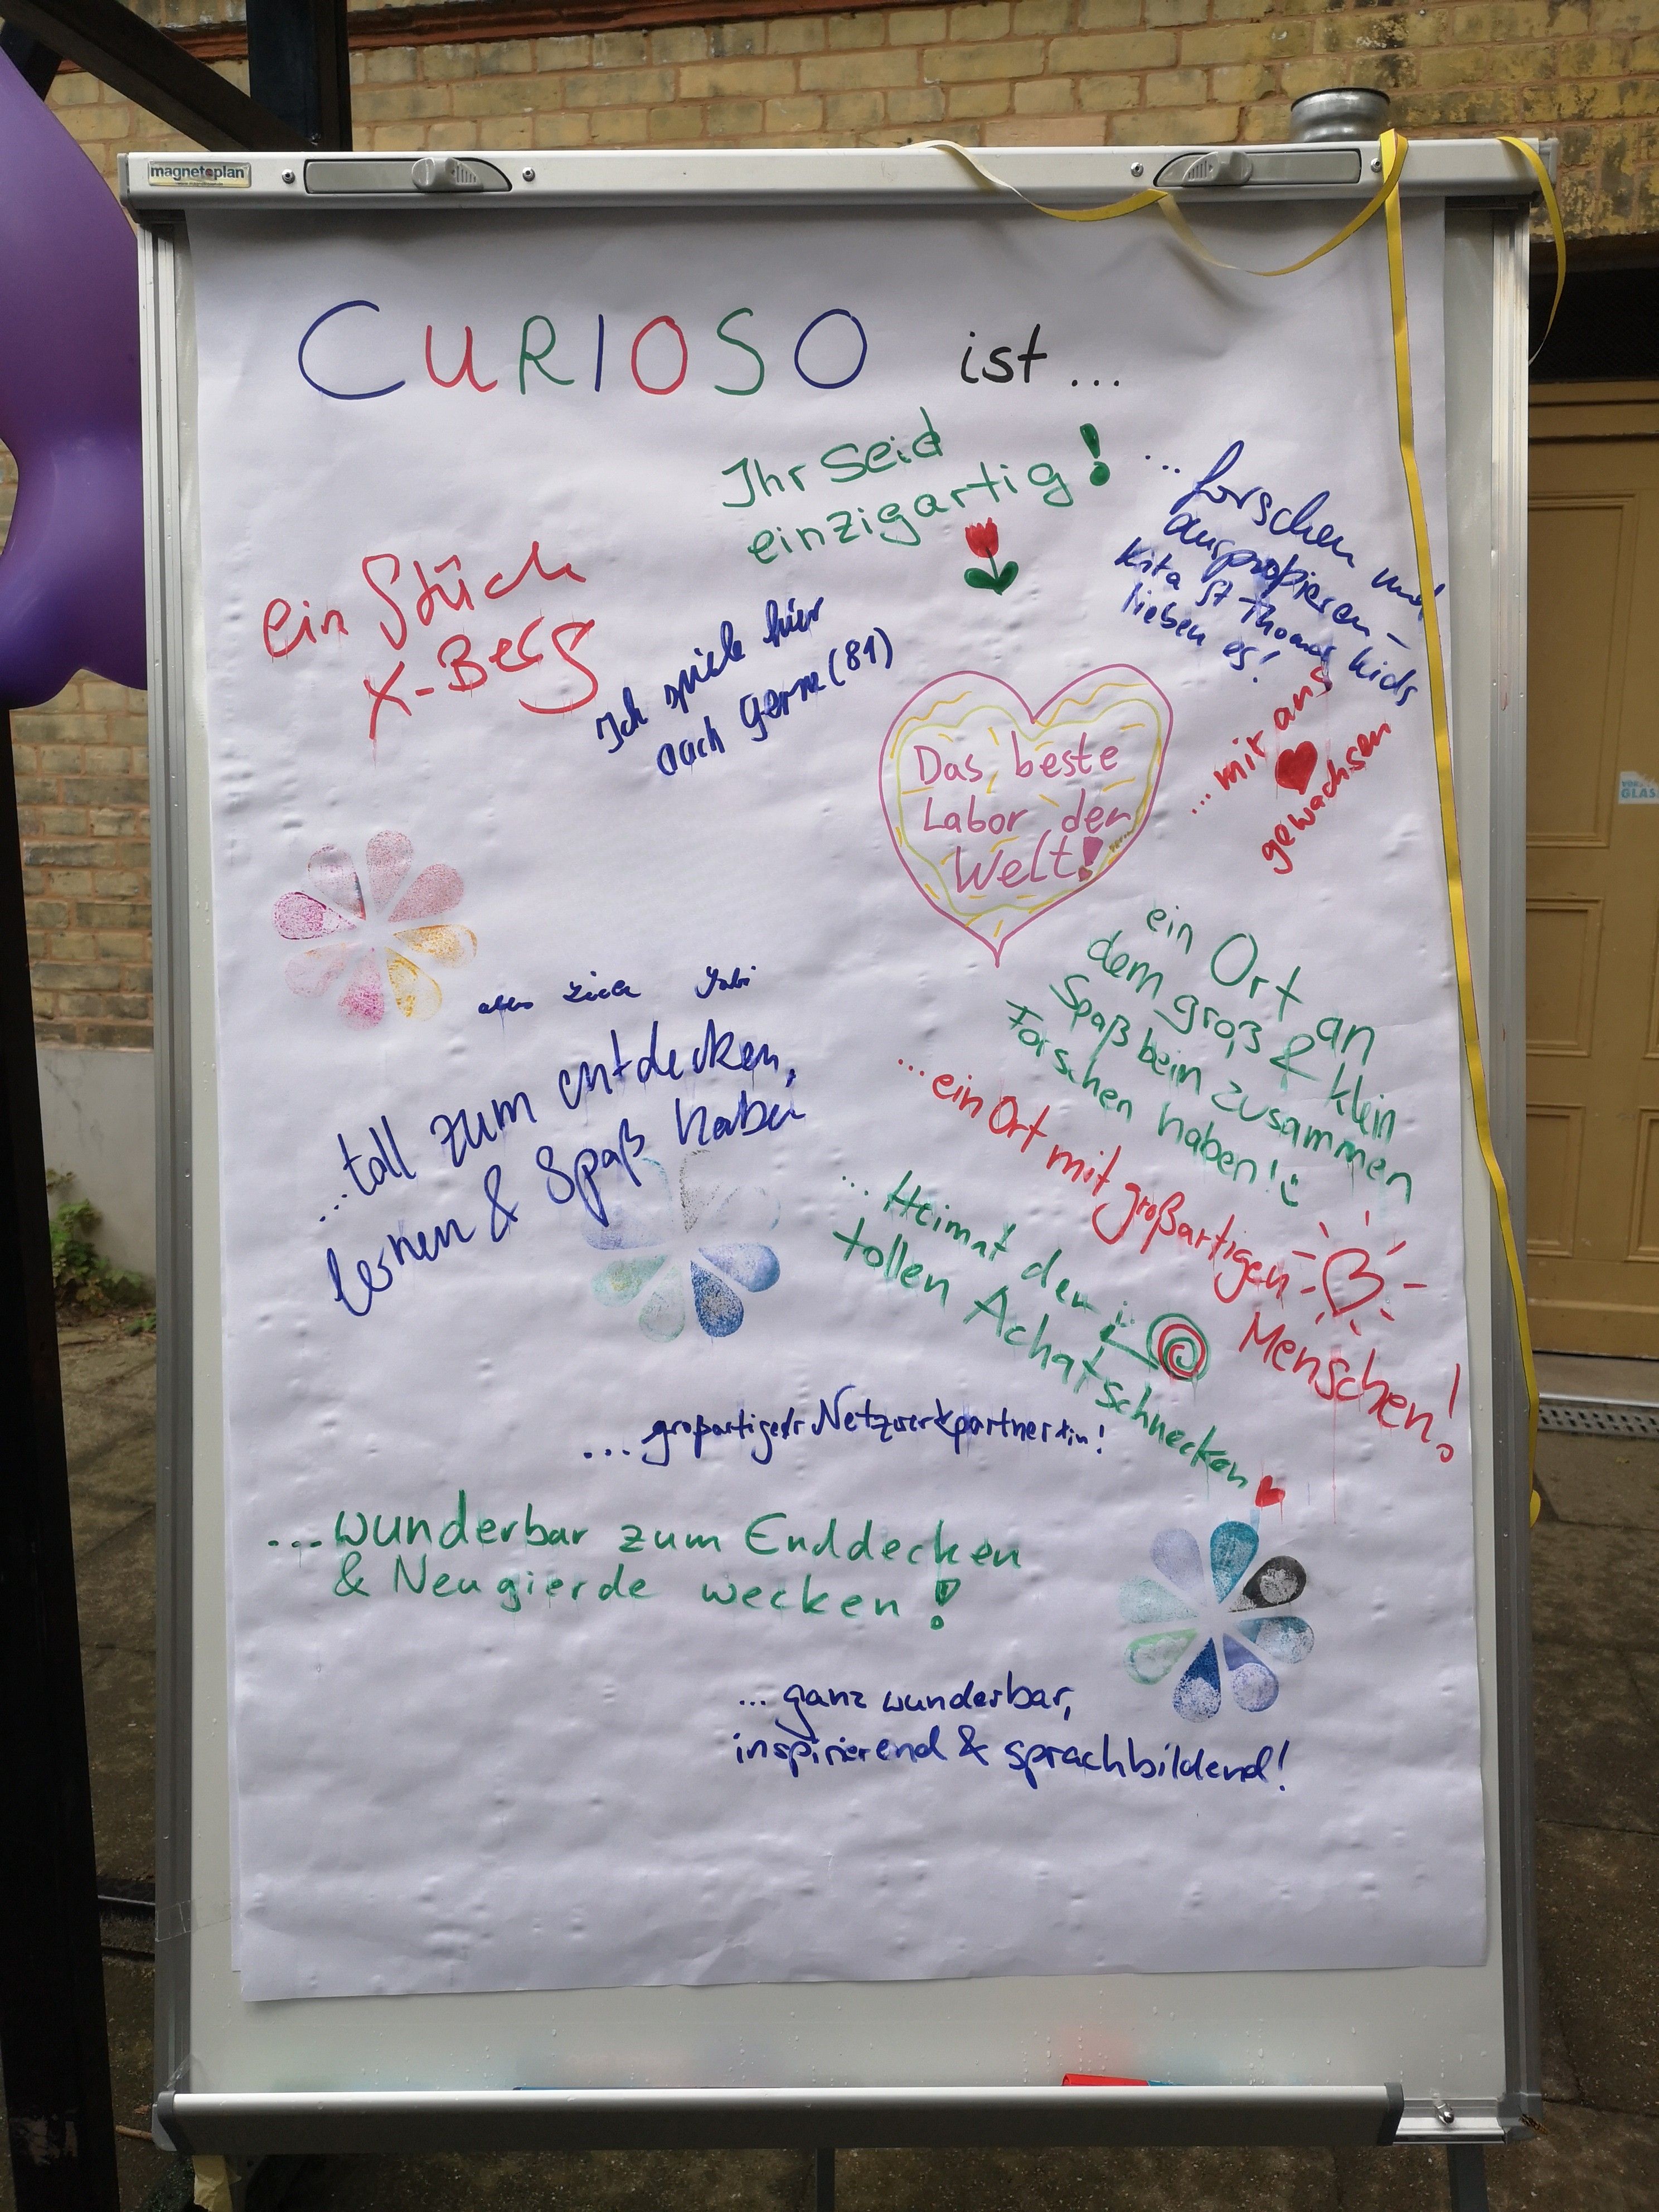 magnetoplan
CURIOSO ist ...
Ihr seid
einzigartig!
... forschen und
ausprobieren –
Kita St Thomas kids
lieben es!
ein Stück
X-Berg
Ich spiele hier
auch gerne (81)
... mit ans
gewachsen
Das beste
Labor der
Welt!
ein Ort an
dem groß & klein
Spaß beim zusammen
Forschen haben!
Gabi
... toll zum entdecken,
lernen & Spaß haben
... ein Ort mit großartigen
Menschen!
... Heimat der
tollen Achatschnecken
... großartige/r Netzwerkpartner*in!
... wunderbar zum Enddecken
& Neugierde wecken!
... ganz wunderbar,
inspirierend & sprachbildend!
GLAS